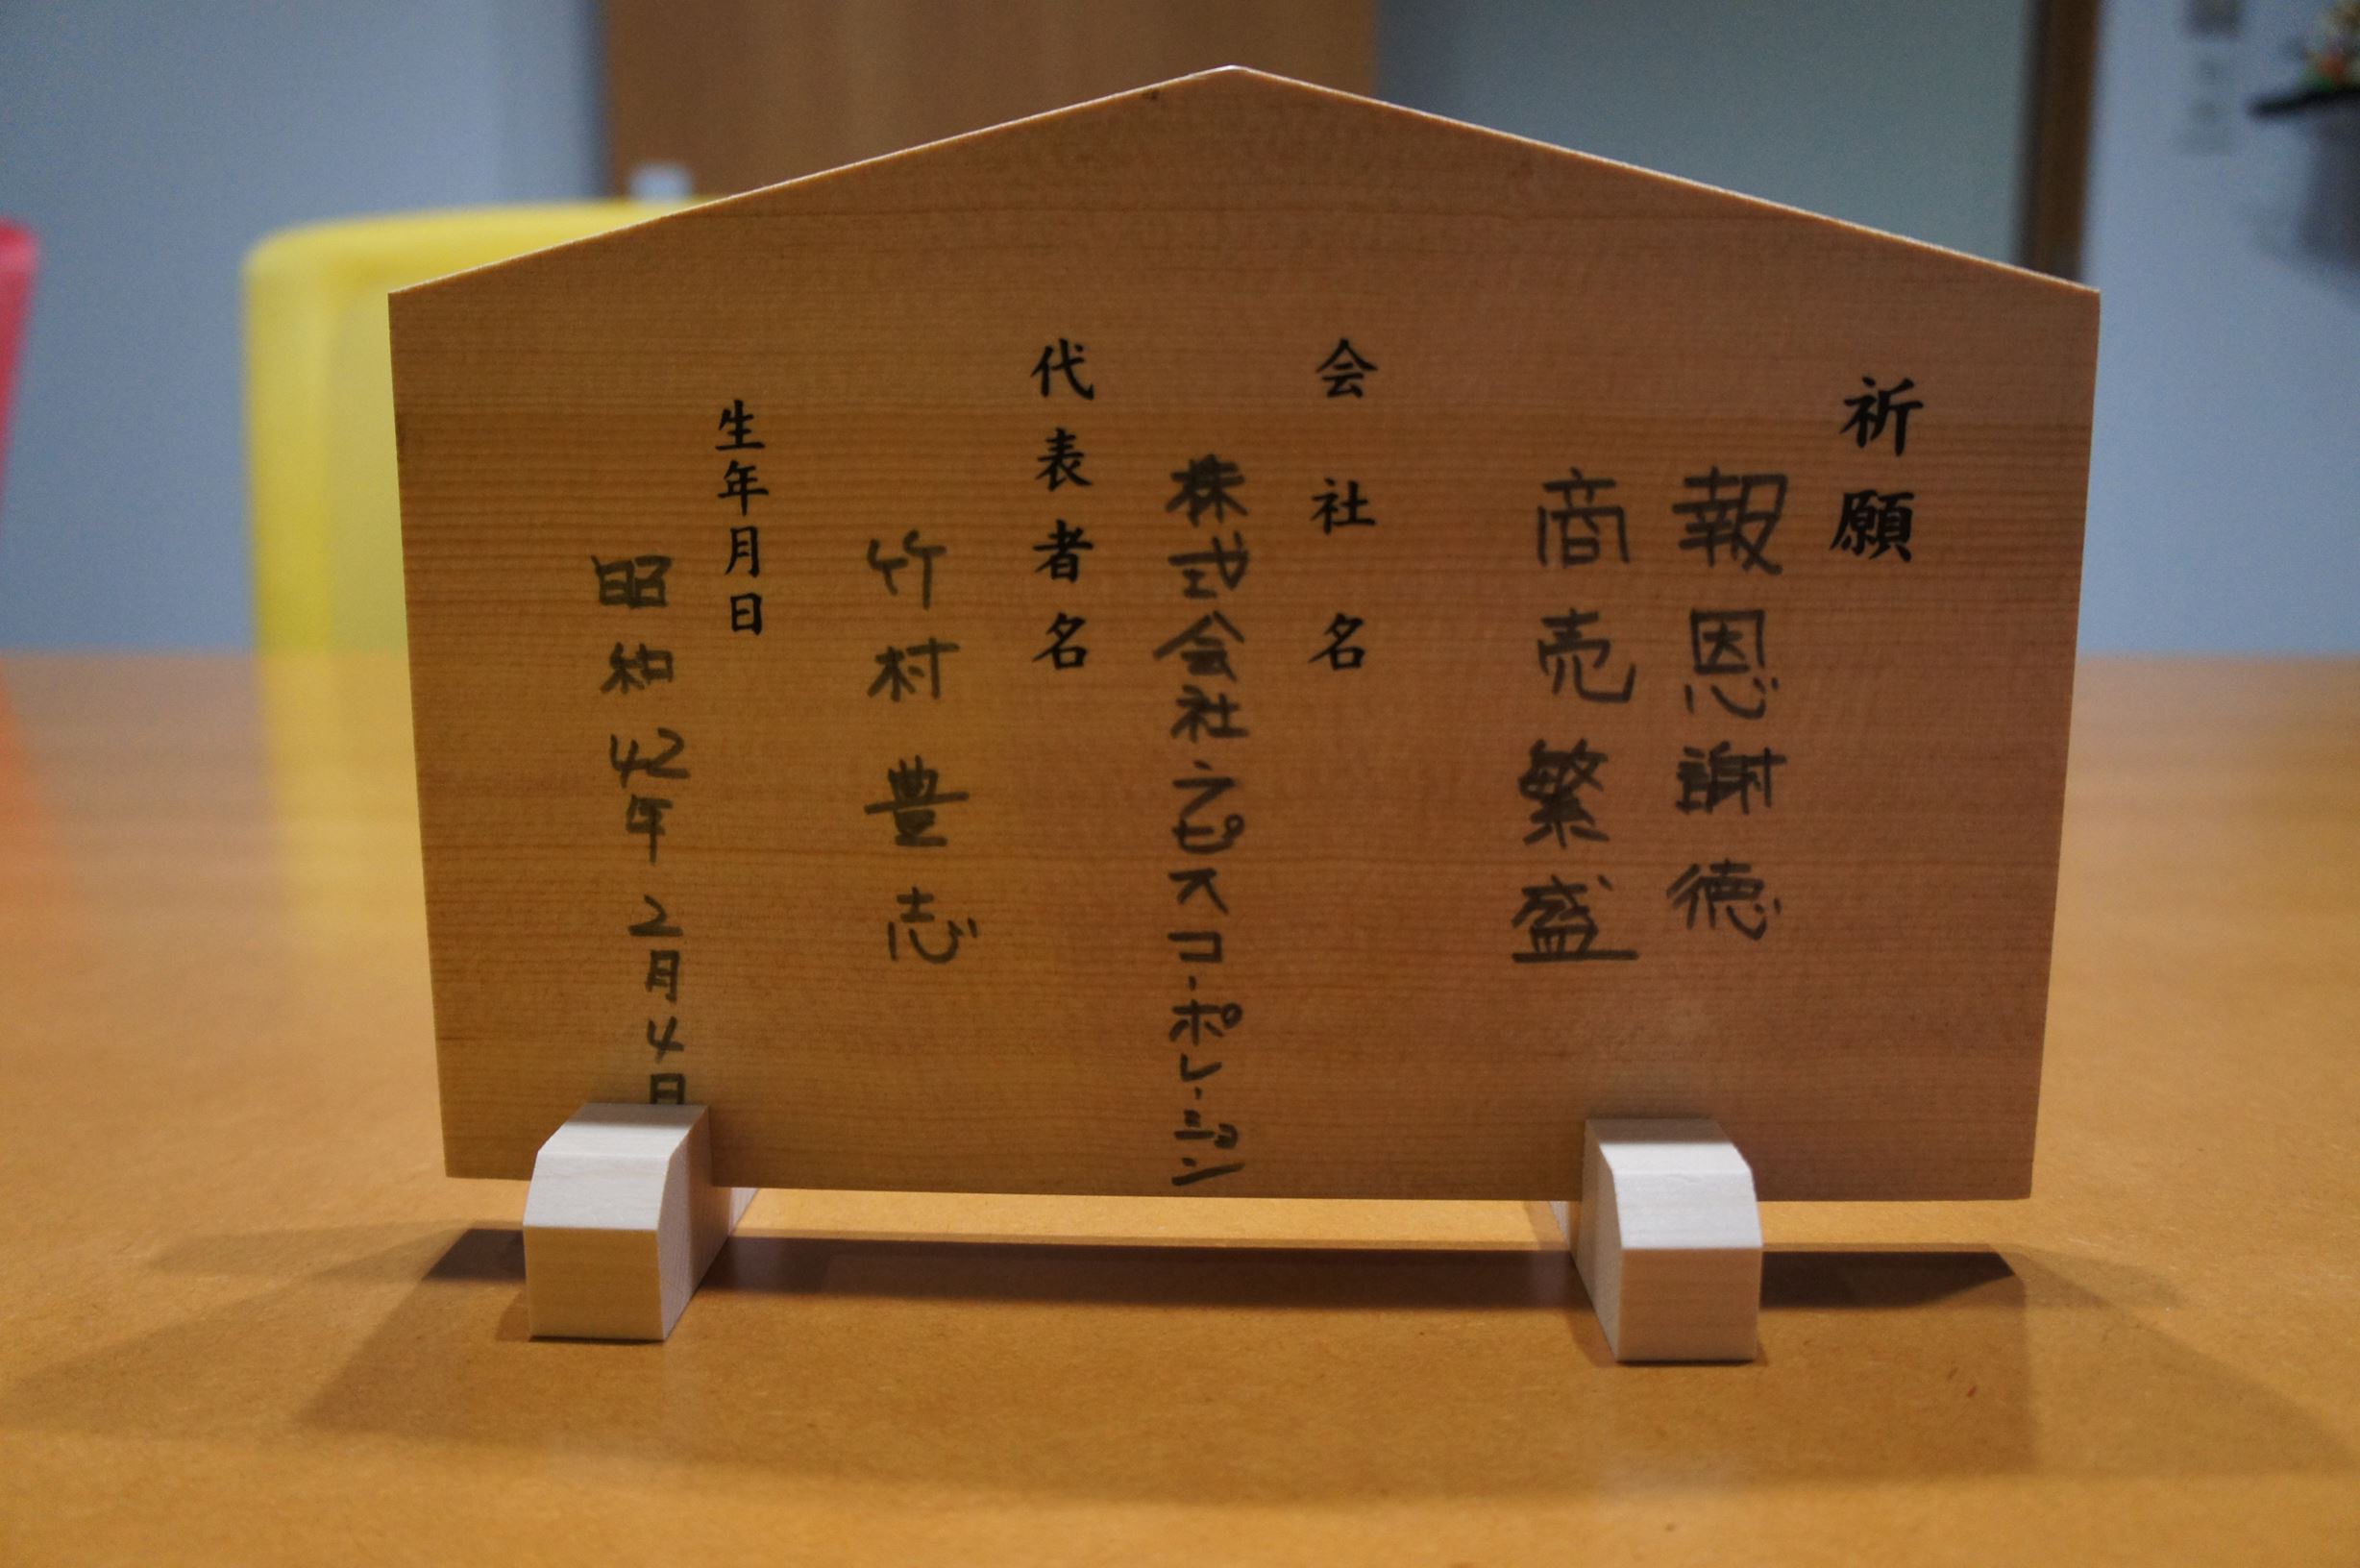 祈願
報恩謝徳
商売繁盛
会社名
株式会社ラピスコーポレーション
代表者名
竹村豊志
生年月日
昭和42年2月4日